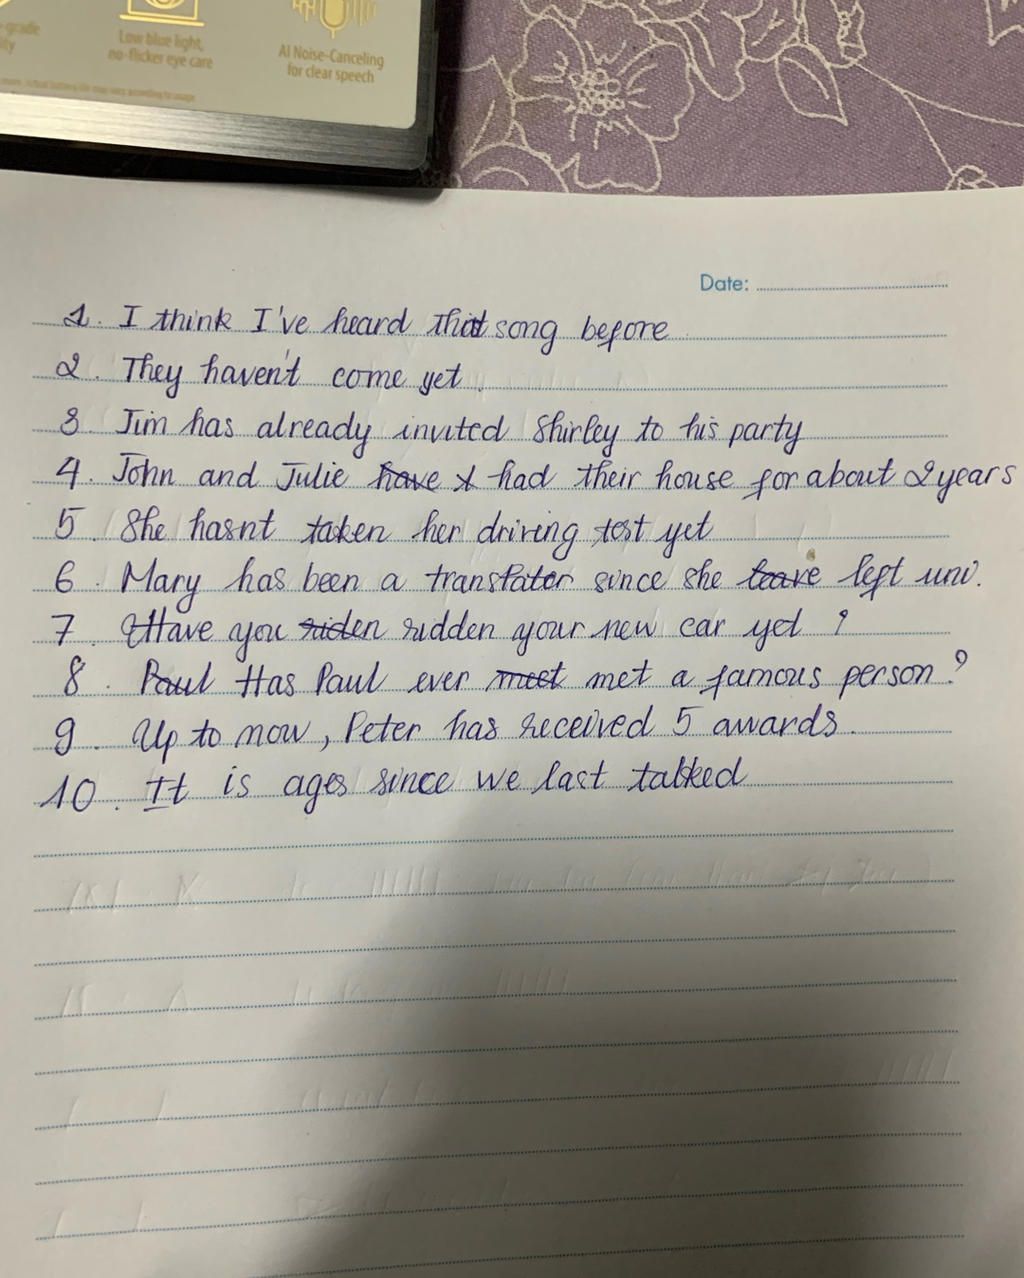 -grade
ity
Low blue light,
no-flicker eye care
AI Noise-Canceling
for clear speech
Date:
1. I think I've heard that song before
2. They haven't come yet.
3 Jim has already invited Shirley to his party
4. John and Julie have had their house for about 2 years
5. She hasnt taken her driving test yet
6. Mary has been a translator since she leave left uni.
7. Have you riden ridden your new car yet ?
8. Paul Has Paul ever meet met a famous person ?
9. Up to now, Peter has received 5 awards.
10. It is ages since we last talked